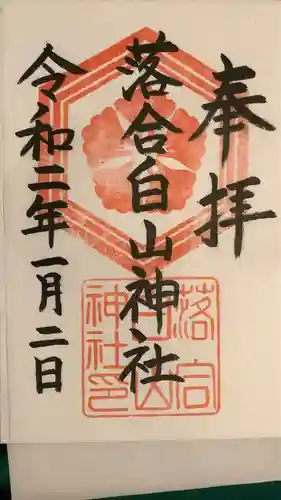 奉拝
落合白山神社
令和二年一月二日
落合
白山
神社印